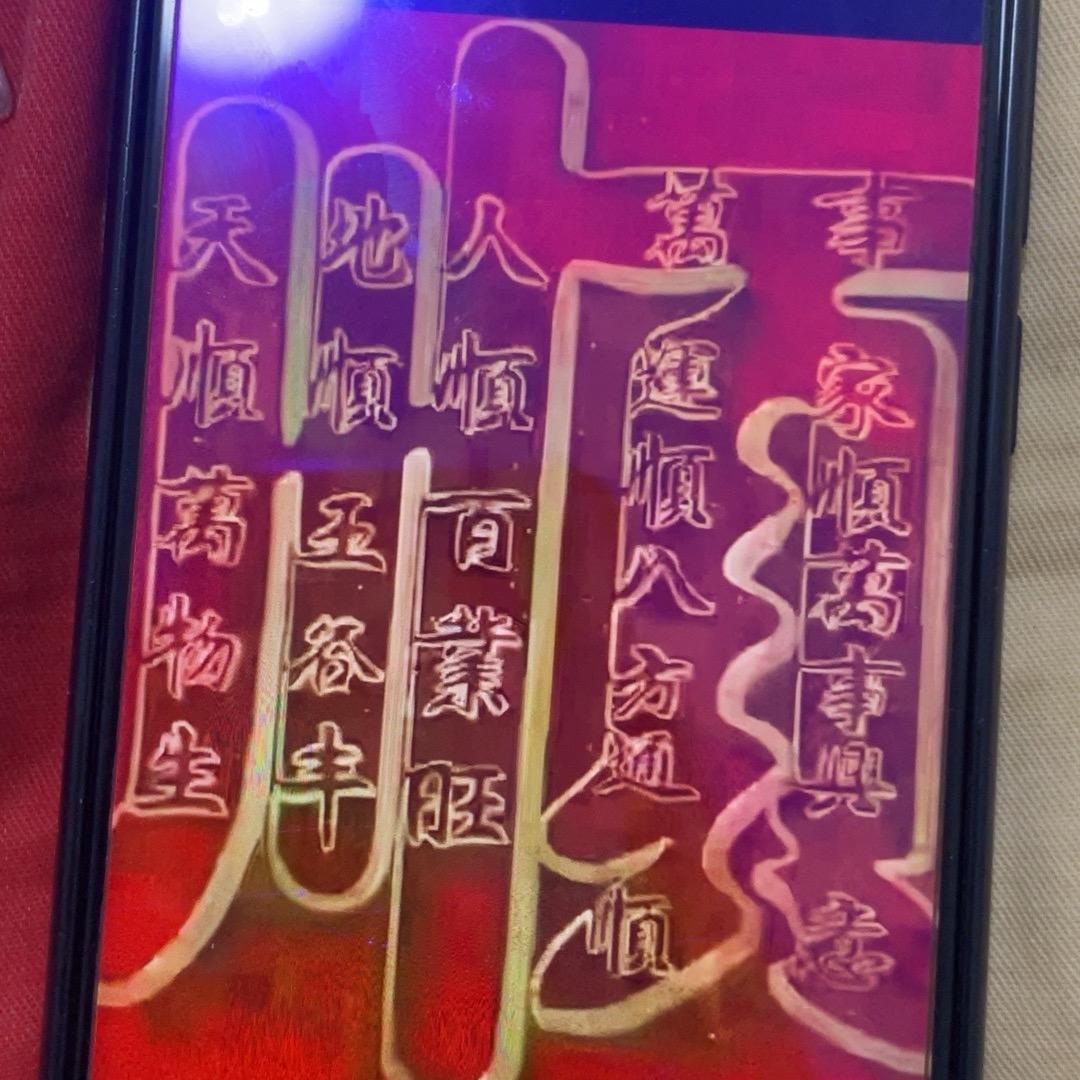 天順萬物生
地順五谷丰
人順百業旺
萬運順八方通順
事家順萬事興意